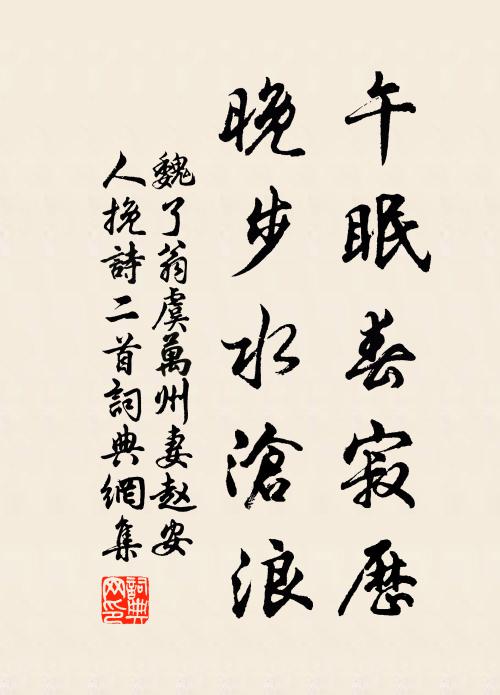 午眠春寂歷
晚步水滄浪
魏了翁虞萬州妻赵安
人挽詩二首詞典網集
詞典網印